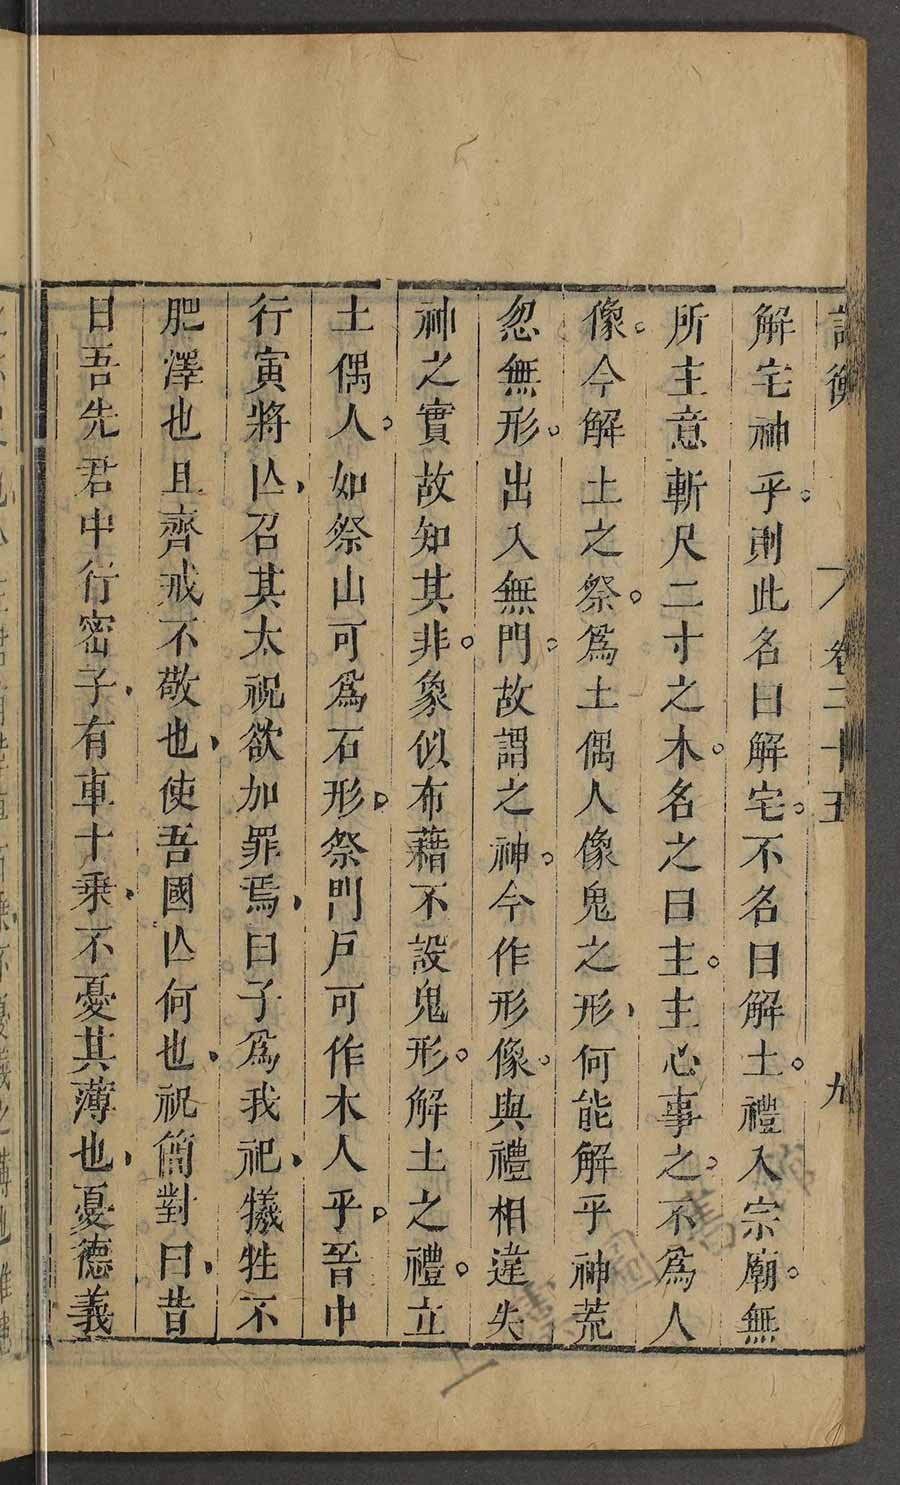 論衡 卷二十五 九
解宅神乎。則此名曰解宅。不名曰解土。禮入宗廟。無
所主意斬尺二寸之木。名之曰主。主心事之。不爲人
像。今解土之祭。爲土偶人像鬼之形、何能解乎神荒
忽無形。出入無門。故謂之神。今作形像。與禮相違失
神之實故知其非。象似布藉不設鬼形。解土之禮。立
土偶人。如祭山可爲石形。祭門戶可作木人乎。晉中
行寅將亾、召其太祝欲加罪焉、曰子爲我祀、犧牲不
肥澤也且齊戒不敬也、使吾國亾何也、祝簡對曰、昔
日吾先君中行密子、有車十乘、不憂其薄也、憂德義